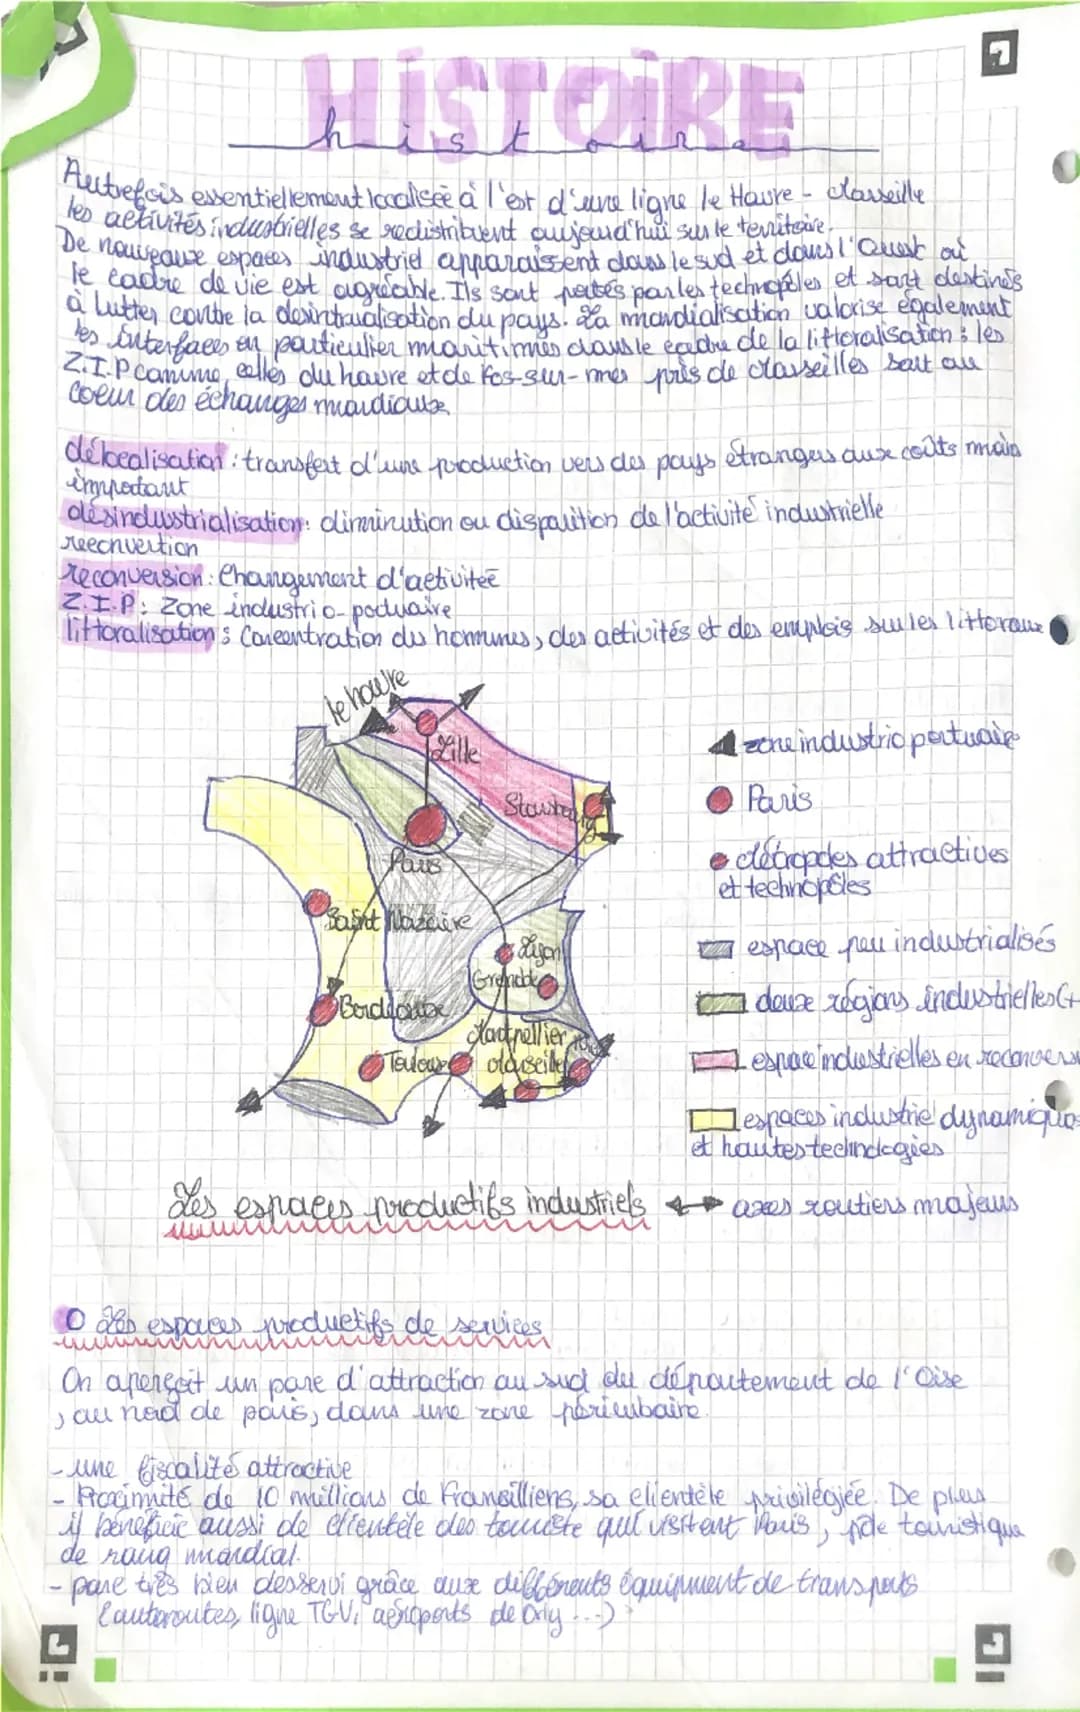 HiSTOiRE
histoire
Autrefois essentiellement localisée à l'est d'une ligne le Havre - Marseille
les activités industrielles se redistribuent aujourd'hui sur le territoire.
De nouveaux espaces industriel apparaissent dans le sud et dans l'Ouest où
le cadre de vie est agréable. Ils sont portés par les technopôles et sont destinés
à lutter contre la desintrualisation du pays. La mondialisation valorise également
les interfaces en particulier maritimes dans le cadre de la littoralisation : les
Z.I.P comme celles du havre et de Fos-sur-mer près de Marseilles sont au
coeur des échanges mondiaux
délocalisation : transfert d'une production vers des pays étrangers aux coûts moin
important
désindustrialisation : diminution ou disparition de l'activité industrielle
reconvertion
reconversion : Changement d'activitée
Z.I.P : Zone industrio-portuaire
littoralisation : Concentration des hommes, des activités et des emplois sur les littoraux
le havre
Lille
Strasbourg
Paris
Saint Nazaire
Lyon
Grenoble
Bordeaux
Montpellier
Toulouse
Marseille
zone industrio portuaire
Paris
Métropoles attractives
et technopôles
espace peu industrialisés
deux régions industrielles (+
espace industrielles en reconvers
espaces industriel dynamique
et hautes technologies
Les espaces productifs industriels
axes routiers majeurs
O Les espaces productifs de services
On aperçoit un parc d'attraction au sud du département de l'Oise
, au nord de paris, dans une zone périurbaire.
- une fiscalité attractive
- Proximité de 10 millions de Fransilliens, sa clientèle privilégiée. De plus
il bénéficie aussi de clientèle des touriste qui visitent Paris, pôle touristique
de rang mondial.
- parc très bien desservi grâce aux différents équipment de transports
(autoroutes, ligne TGV, aéroports de Orly ...)